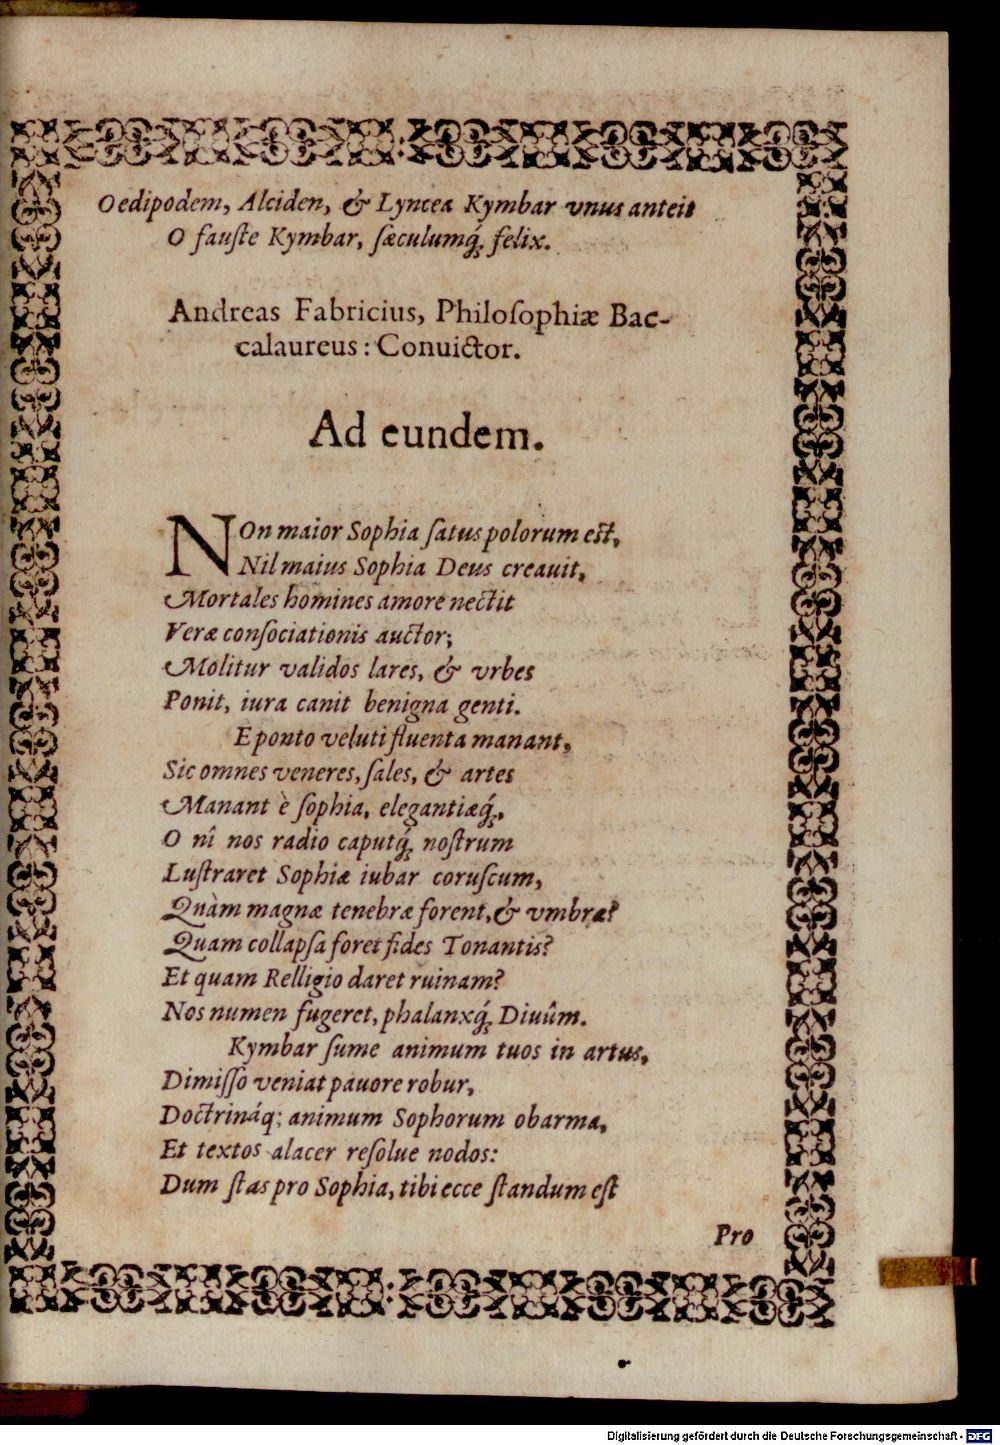 Oedipodem, Alciden, & Lyncea Kymbar vnus anteit
O fauſte Kymbar, ſæculumq́ꝫ felix.
Andreas Fabricius, Philoſophiæ Bac-
calaureus: Conuictor.
Ad eundem.
NOn maior Sophia ſatus polorum eſt,
Nil maius Sophia Deus creauit,
Mortales homines amore nectit
Veræ conſociationis auctor;
Molitur validos lares, & vrbes
Ponit, iura canit benigna genti.
E ponto veluti fluenta manant,
Sic omnes veneres, ſales, & artes
Manant è ſophia, elegantiæq́ꝫ,
O nî nos radio caputq́ꝫ noſtrum
Luſtraret Sophiæ iubar coruſcum,
Quàm magnæ tenebræ forent, & vmbræ?
Quam collapſa foret fides Tonantis?
Et quam Relligio daret ruinam?
Nos numen fugeret, phalanxq́ꝫ Diuûm.
Kymbar ſume animum tuos in artus,
Dimiſſo veniat pauore robur,
Doctrináq; animum Sophorum obarma,
Et textos alacer reſolue nodos:
Dum ſtas pro Sophia, tibi ecce ſtandum eſt
Pro
Digitalisierung gefördert durch die Deutsche Forschungsgemeinschaft - DFG